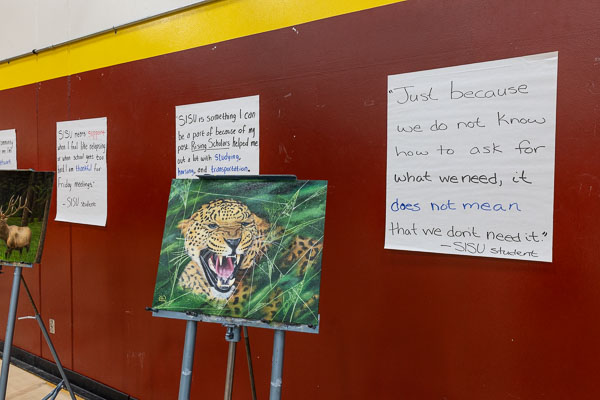 SISU means support
when I feel like relapsing
or when school gets too
hard I am thankful for
Friday meetings."
- SISU student
"SISU is something I can
be a part of because of my
past. Rising Scholars helped me
out a lot with studying,
housing, and transportation.
"Just because
we do not know
how to ask for
what we need, it
does not mean
that we don't need it."
- SISU student